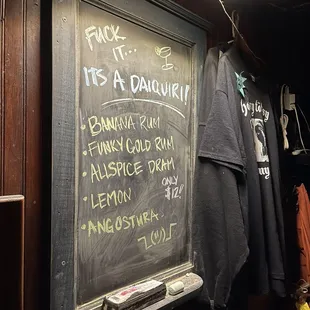 FUCK
IT...
IT'S A DAIQUIRI!
• BANANA RUM
• FUNKY GOLD RUM
• ALLSPICE DRAM
• LEMON
• ANGOSTURA
ONLY
$12!
¯\_(ツ)_/¯